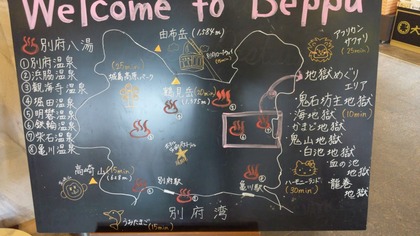 Welcome to Beppu
別府八湯
①別府温泉
②浜脇温泉
③観海寺温泉
④堀田温泉
⑤明礬温泉
⑥鉄輪温泉
⑦柴石温泉
⑧亀川温泉
由布岳
(1,584m)
(25min)
城島高原パーク
鶴見岳
(1,375m)
アフリカン
サファリ
(25min)
地獄めぐり
エリア
鬼石坊主地獄
海地獄 (10min)
かまど地獄
鬼山地獄
白池地獄
血の池
地獄
龍巻
地獄
ハーモニーランド
(30min)
高崎山 (15min)
(628m)
別府駅
亀川駅
うみたまご (15min)
別府湾